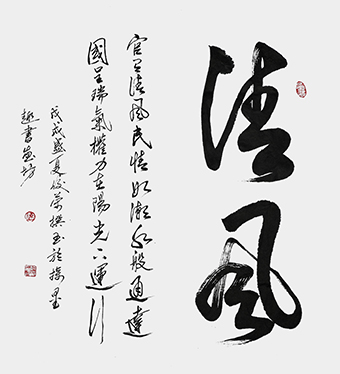 清風
官呈清風民情如潮水般通達
國呈瑞氣權力在陽光下運行
戊戌盛夏俊榮撰於墨
趣書畫坊